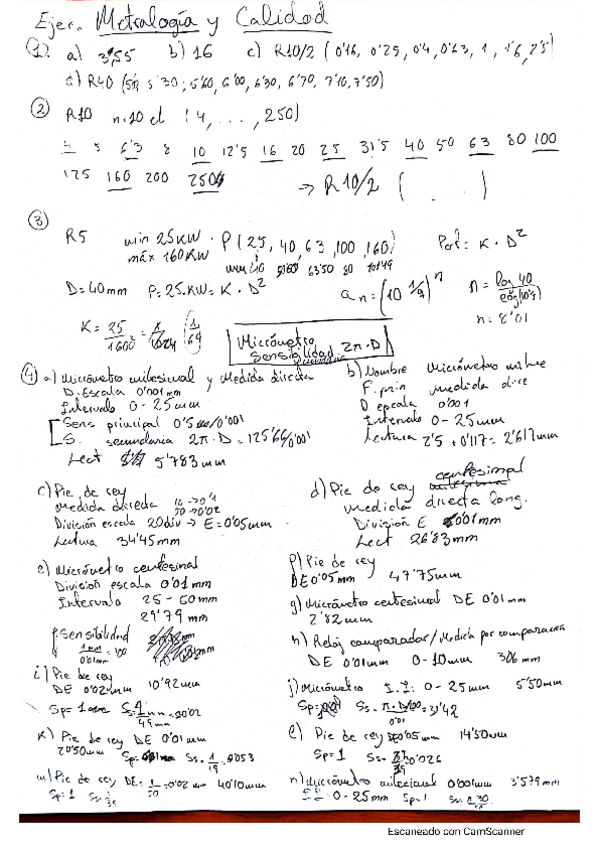 Ejer. Metrología y Calidad
① a) 3'55 b) 16 c) R10/2 (0'16, 0'25, 0'4, 0'63, 1, 1'6, 2'5)
d) R40 (5'30; 5'60, 6'00, 6'30, 6'70, 7'10, 7'50)
② R10 n=10 el (4, ..., 250)
4 5 6'3 8 10 12'5 16 20 25 31'5 40 50 63 80 100
125 160 200 250 → R10/2 ( . . )
③
R5 min 25KW · P (25, 40, 63, 100, 160) Pot = K · D²
máx 160KW
D=40mm P=25KW = K · D² an = (10 1/9)ⁿ n = log 40
n = 8'01
K = 25/1600 = 1/64
Micrómetro
Sensibilidad 2π·D
④ a) Micrómetro milesimal y Medida directa
D. Escala 0'001mm
Intervalo 0-25mm
Sens principal 0'5/0'001
S. secundaria 2π·D = 125'66/0'001
Lect 5'783mm
b) Nombre Micrómetro
F. prin Medida
D escala 0'001
Intervalo 0-25mm
Lectura 2'5 + 0'117 = 2'617mm
c) Pie de rey
Medida directa
División escala 20div → E=0'05mm
Lectura 34'45mm
d) Pie de rey centesimal
Medida directa long.
División E 0'01mm
Lect 26'83mm
e) Micrómetro centesimal
División escala 0'01mm
Intervalo 25-50mm
29'79mm
Sensibilidad
1mm/0'01mm = 100
f) Pie de rey
DE 0'05mm 47'75mm
g) Micrómetro centesimal DE 0'01mm
2'82mm
h) Reloj comparador/Medida por comparación
DE 0'01mm 0-10mm 3'06mm
i) Pie de rey
DE 0'02mm 10'92mm
Sp=1 49mm
j) Micrómetro I.I: 0-25mm 5'50mm
k) Pie de rey DE 0'01mm
20'50mm Ss. 1/19 = 0'053
l) Pie de rey DE 0'05mm 14'50mm
Sp=1 0'026
m) Pie de rey DE: 1/50 = 0'02mm 40'10mm
Sp=1
n) Micrómetro milesimal 0'001mm 3'579mm
0-25mm Sp=1
Escaneado con CamScanner